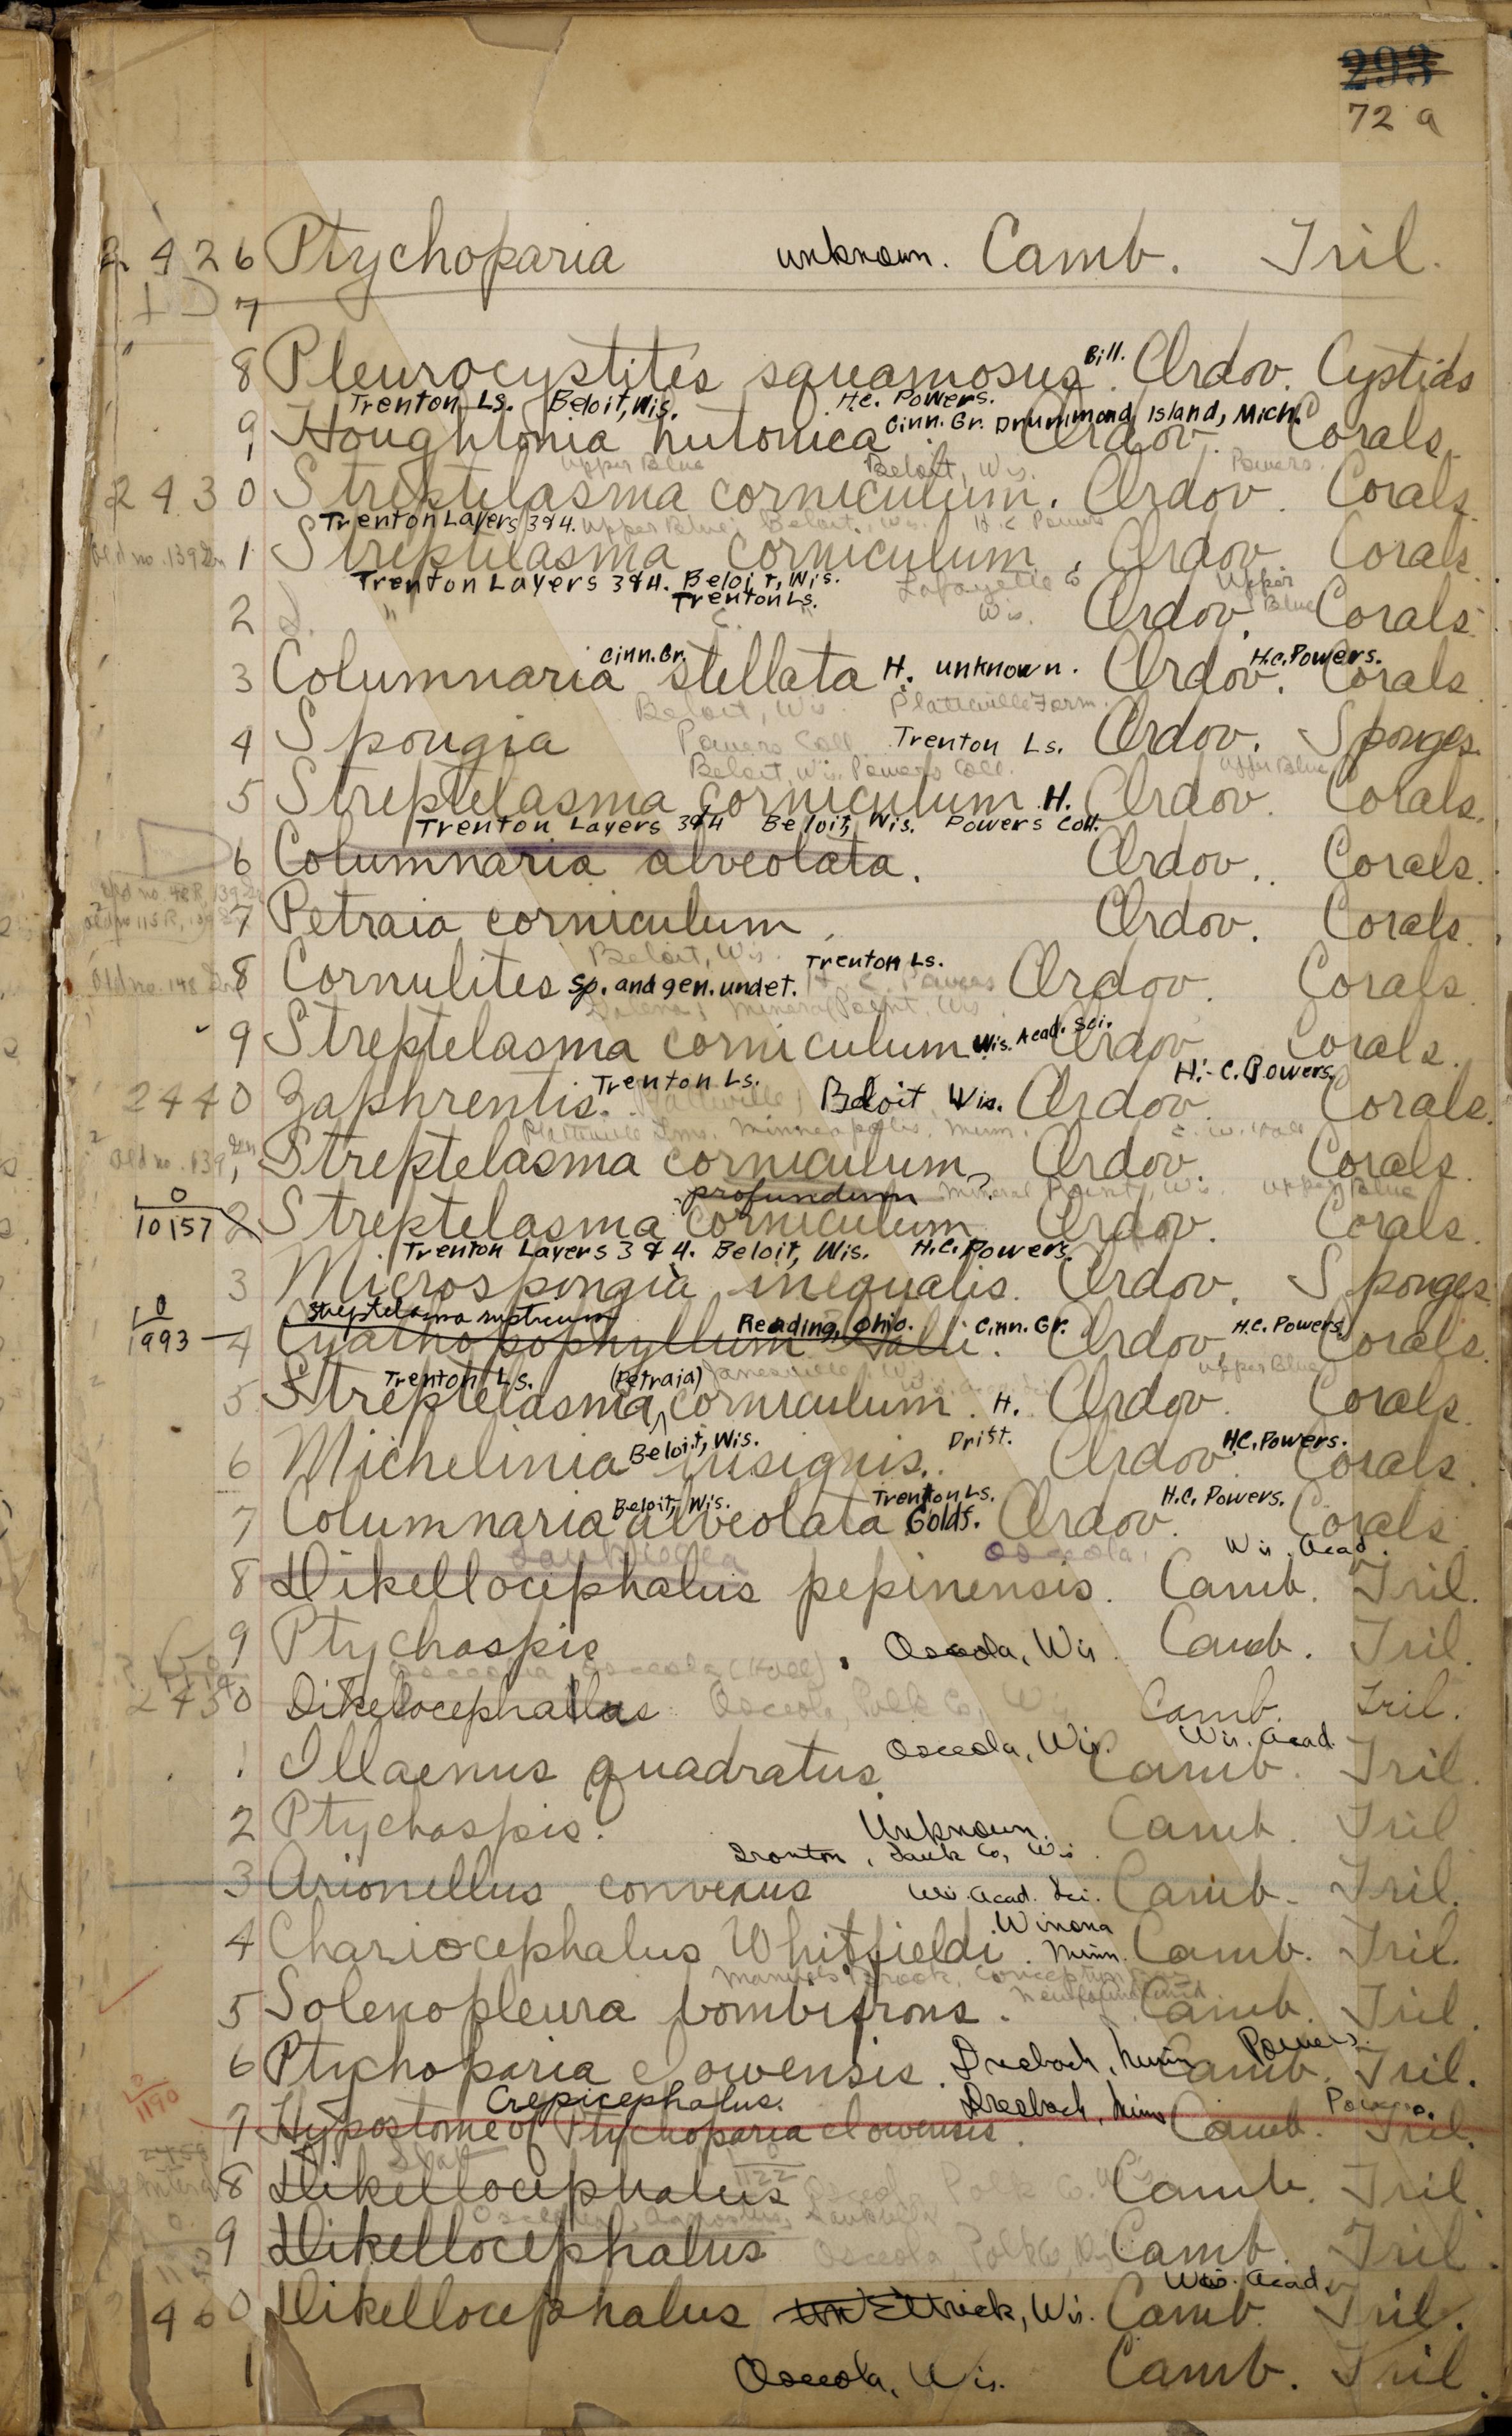 293
72 a
2426 Ptychoparia unknown. Camb. Tril.
7
8 Pleurocystites squamosus Bill. Ordov. Cystids
Trenton Ls. Beloit, Wis. H.C. Powers.
Cinn. Gr. Drummond Island, Mich.
9 Houghtonia hutonica Ordov. Corals.
Upper Blue Beloit, Wis. Powers.
2430 Streptelasma corniculum. Ordov. Corals.
Trenton Layers 3&4. Upper Blue, Beloit, Wis. H.C. Powers
Old no. 139 1 Streptelasma corniculum, Ordov. Corals.
Trenton Layers 3&4. Beloit, Wis. Lafayette Co Upper
Trenton Ls.
2 S. " C. " Wis. Ordov. Blue Corals.
Cinn. Gr. H.C. Powers.
3 Columnaria stellata H. unknown. Ordov. Corals
Beloit, Wis. Platteville Form.
4 Spongia Powers Coll. Trenton Ls. Ordov. Sponges.
Beloit, Wis. Powers Coll. Upper Blue
5 Streptelasma corniculum H. Ordov. Corals.
Trenton Layers 3&4 Beloit, Wis. Powers Coll.
6 Columnaria alveolata. Ordov. Corals.
7 Petraia corniculum Ordov. Corals.
Beloit, Wis. Trenton Ls.
Old no. 148 8 Cornulites Sp. and gen. undet. H. C. Powers Ordov. Corals.
Galena, Mineral Point, Wis.
9 Streptelasma corniculum Wis. Acad. Sci. Ordov. Corals.
Trenton Ls. H.C. Powers.
2440 Zaphrentis. Platteville, Beloit Wis. Ordov. Corals.
Platteville Lms. Minneapolis, Minn. C. W. Hall
Old no. 139 1 Streptelasma corniculum Ordov. Corals.
profundum ? Mineral Point, Wis. Upper Blue
0
10157 2 Streptelasma corniculum Ordov. Corals.
Trenton Layers 3 & 4. Beloit, Wis. H.C. Powers.
3 Microspongia inequalis. Ordov. Sponges.
Streptelasma rusticum Reading, Ohio. Cinn. Gr. H.C. Powers
0
1993 4 Cyathopophyllum Halli. Ordov. Corals.
Trenton Ls. (Petraia) Janesville, Wis. Upper Blue
5 Streptelasma corniculum. H. Ordov. Corals.
Beloit, Wis. Drift. H.C. Powers.
6 Michelinia insignis. Ordov. Corals.
Beloit, Wis. Trenton Ls. H.C. Powers.
7 Columnaria alveolata Goldf. Ordov. Corals
Saukiella Osceola, Wis. Acad.
8 Dikellocephalus pepinensis. Camb. Tril.
9 Ptychaspis. Osceola, Wis. Camb. Tril.
Osceolia osceola (Hall)
2450 Dikelocephalus Osceola, Polk Co, Wis Camb. Tril.
Osceola, Wis. Wis. Acad.
1 Illaenus quadratus Camb. Tril.
2 Ptychaspis. Unknown. Camb. Tril
Ironton, Sauk Co, Wis.
3 Arionellus convexus Wis. Acad. Sci. Camb. Tril.
Winona
4 Chariocephalus Whitfieldi. Minn. Camb. Tril.
Manuels Brook, Conception
Newfoundland
5 Solenopleura bombifrons. Camb. Tril.
6 Ptychoparia elowensis. Dresbach, Minn Camb. Powers. Tril.
0
1190
Crepicephalus. Dresbach, Minn Powers.
7 Hypostome of Ptychoparia elowensis. Camb. Tril.
Slab
1122
8 Dikellocephalus Osceola, Polk Co. Wis Camb. Tril.
9 Dikellocephalus Osceola, Polk Co, Wis Camb. Tril.
Wis. Acad.
460 Dikellocephalus Ettrick, Wis. Camb. Tril.
1 Osceola, Wis. Camb. Tril.